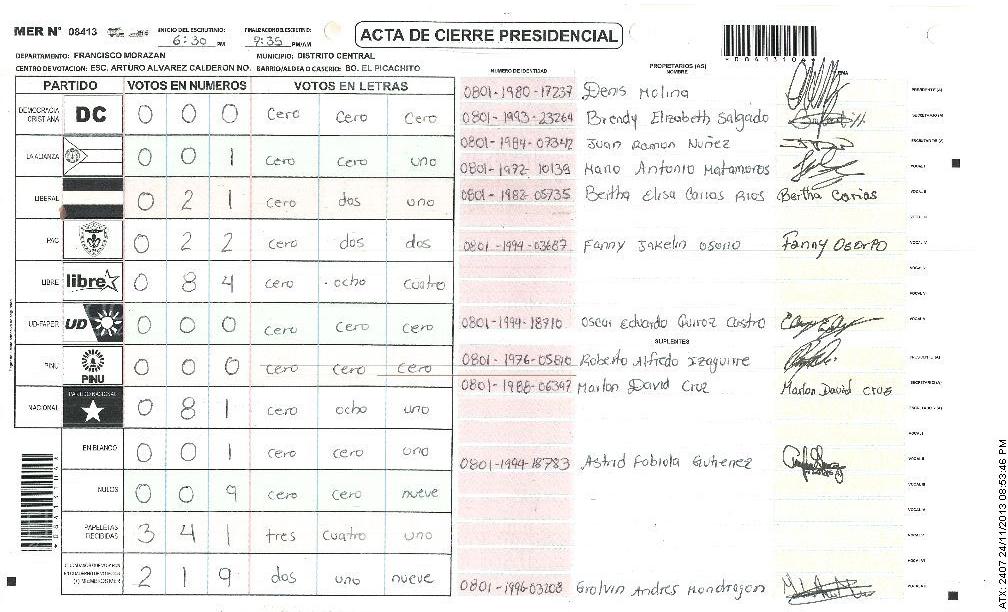 MER Nº 08413 INICIO DEL ESCRUTINIO: 6:30 PM FINALIZACION DEL ESCRUTINIO: 9:35 PM/AM
ACTA DE CIERRE PRESIDENCIAL
DEPARTAMENTO: FRANCISCO MORAZAN MUNICIPIO: DISTRITO CENTRAL
CENTRO DE VOTACION: ESC. ARTURO ALVAREZ CALDERON NO. BARRIO/ALDEA O CASERIO: BO. EL PICACHITO
PARTIDO VOTOS EN NUMEROS VOTOS EN LETRAS
DEMOCRACIA CRISTIANA DC 0 0 0 cero cero cero
LA ALIANZA 0 0 1 cero cero uno
LIBERAL 0 2 1 cero dos uno
PAC 0 2 2 cero dos dos
LIBRE libre 0 8 4 cero ocho cuatro
UD-FAPER UD 0 0 0 cero cero cero
PINU PINU 0 0 0 cero cero cero
NACIONAL PARTIDO NACIONAL 0 8 1 cero ocho uno
EN BLANCO 0 0 1 cero cero uno
NULOS 0 0 9 cero cero nueve
PAPELETAS RECIBIDAS 3 4 1 tres cuatro uno
2 1 9 dos uno nueve
NUMERO DE IDENTIDAD PROPIETARIOS (AS)
NOMBRE
0801-1980-17237 Denis Molina PRESIDENTE (A)
0801-1993-23264 Brendy Elizabeth Salgado SECRETARIO (A)
0801-1984-07342 Juan Ramon Nuñez ESCRUTADOR (A)
0801-1972-10139 Mario Antonio Matamoros VOCAL I
0801-1982-05735 Bertha Elisa Carias Rios Bertha Carias VOCAL II
0801-1994-03687 Fanny Jakelin Osorio Fanny Osorio VOCAL IV
0801-1994-18710 Oscar Eduardo Quiroz Castro
SUPLENTES
0801-1976-05810 Roberto Alfredo Izaguirre PRESIDENTE (A)
0801-1988-06397 Marlon David Cruz Marlon David Cruz SECRETARIO (A)
ESCRUTADOR (A)
0801-1994-18783 Astrid Fabiola Gutierrez
0801-1996-03208 Andres Mondragon
TX: 2407 24/11/2013 08:53:46 PM